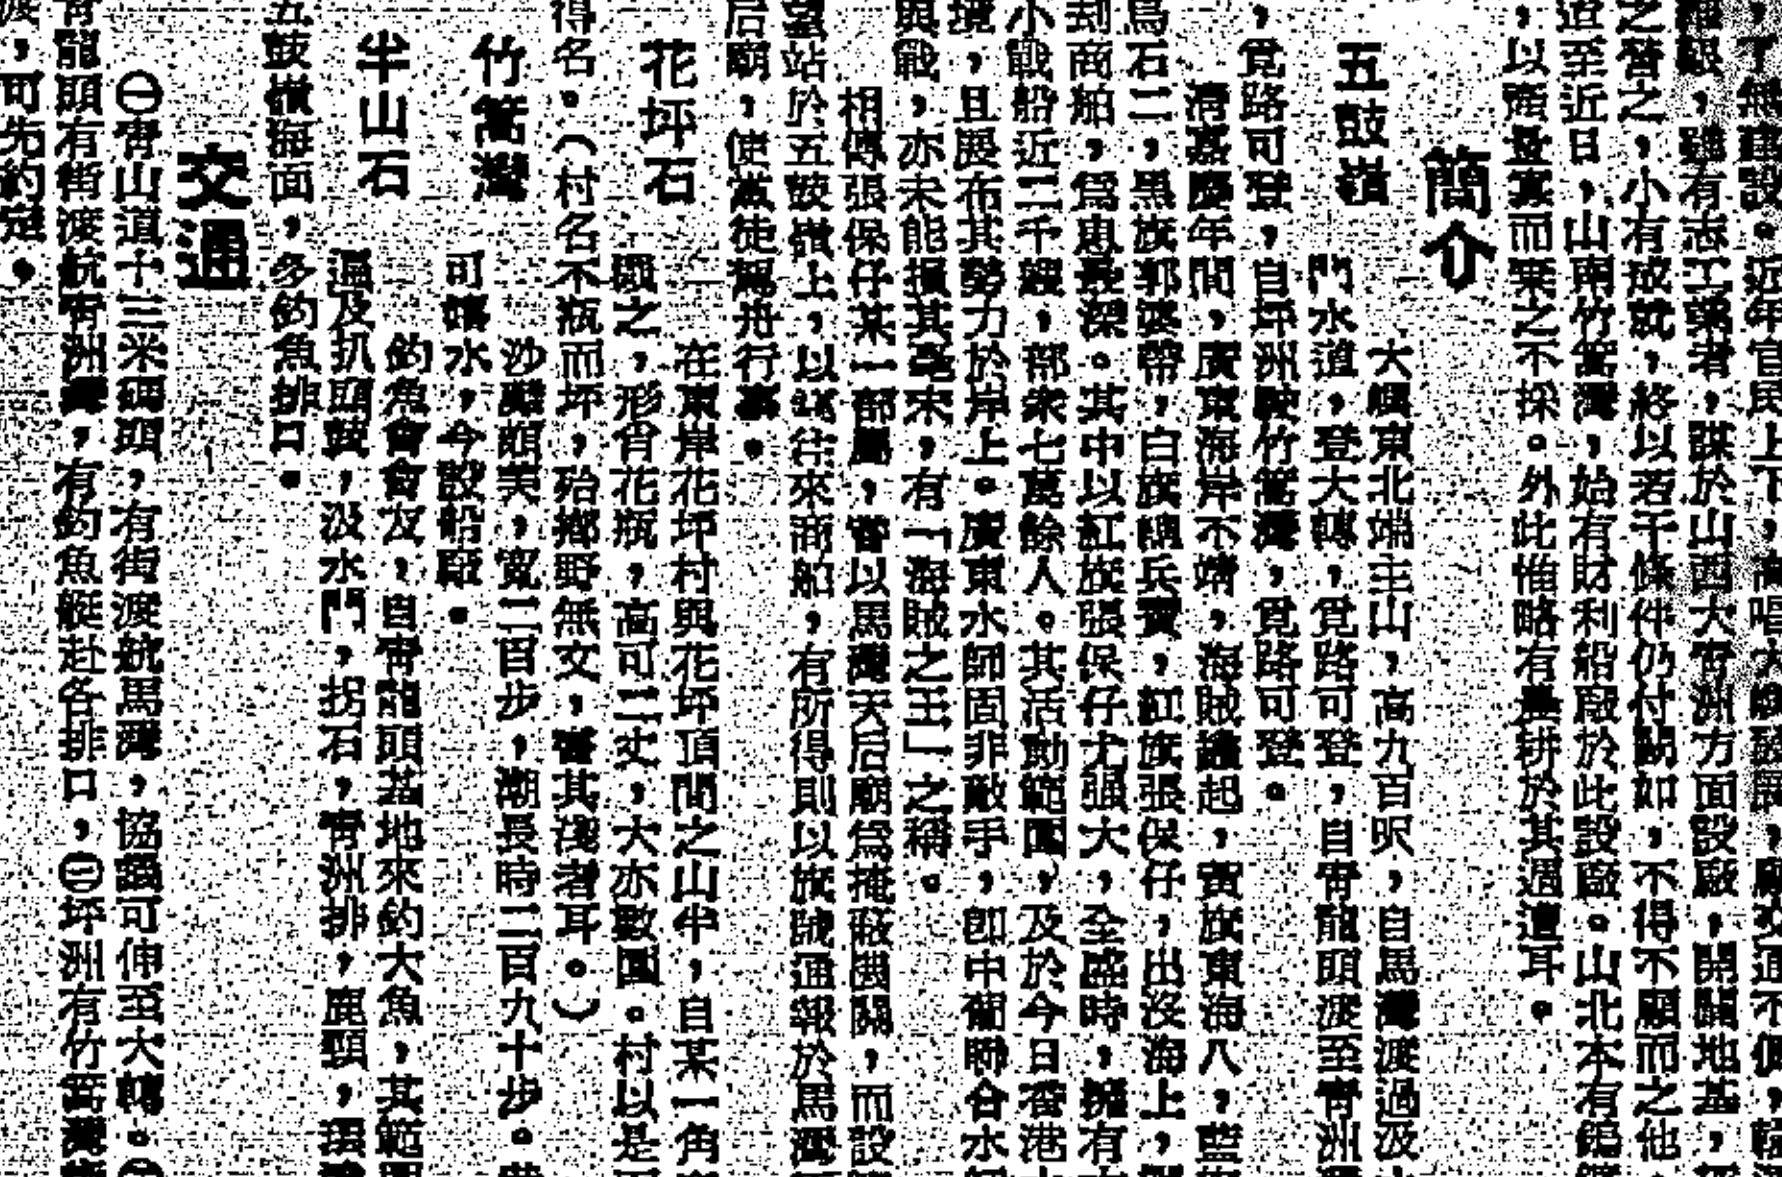 ，了無建設。近年官民上下，高唱大嶼發展，廠交通不便，
艱，雖有志工業者，謀於山西大靑洲方面設廠，開闢地基，
之晉之，小有成就，終以若干條件仍付闕如，不得不顧而之他，
至近日，山南竹篙灣，始有財利船廠於此設廠。山北本有鎢
，以產量寡而棄之不採。外此惟略有農耕於其週遭耳。
簡介
五鼓嶺
大嶼東北端主山，高九百呎，自馬灣渡過汲
門水道，登大轉，覓路可登，自靑龍頭渡至靑洲
，覓路可登，自坪洲駛竹篙灣，覓路可登。
淸嘉慶年間，廣東海岸不靖，海賊蠭起，黃旗東海八，藍
烏石二，黑旗郭婆帶，白旗總兵寶，紅旗張保仔，出沒海上，
刦商舶，爲患最深。其中以紅旗張保仔尤強大，全盛時，擁有
小戰船近二千艘，部衆七萬餘人。其活動範圍，及於今日香港
境，且展布其勢力於岸上。廣東水師固非敵手，卽中葡聯合水
與戰，亦未能損其毫末，有「海賊之王」之稱。
相傳張保仔某一部屬，嘗以馬灣天后廟爲掩蔽機關，而設
望站於五鼓嶺上，以窺往來商船，有所得則以旗號通報於馬灣
后廟，使黨徒駕舟行事。
花坪石
在東岸花坪村與花坪頂間之山半，自某一角
顧之，形肖花瓶，高可二丈，大亦數圍。村以是
得名。（村名不瓶而坪，殆鄉野無文，書其淺者耳。）
竹篙灣
沙灘頗美，寬二百步，潮長時二百九十步。
可嬉水，今設船廠。
半山石
釣魚會會友，自靑龍頭基地來釣大魚，其範
遍及扒頭鼓，汲水門，拐石，靑洲排，鹿頸，
五鼓嶺海面，多釣魚排口。
交通
㊀靑山道十三米碼頭，有街渡航馬灣，協議可伸至大轉。
靑龍頭有街渡航靑洲灣，有釣魚艇赴各排口，㊂坪洲有竹篙灣
渡，可先約定。